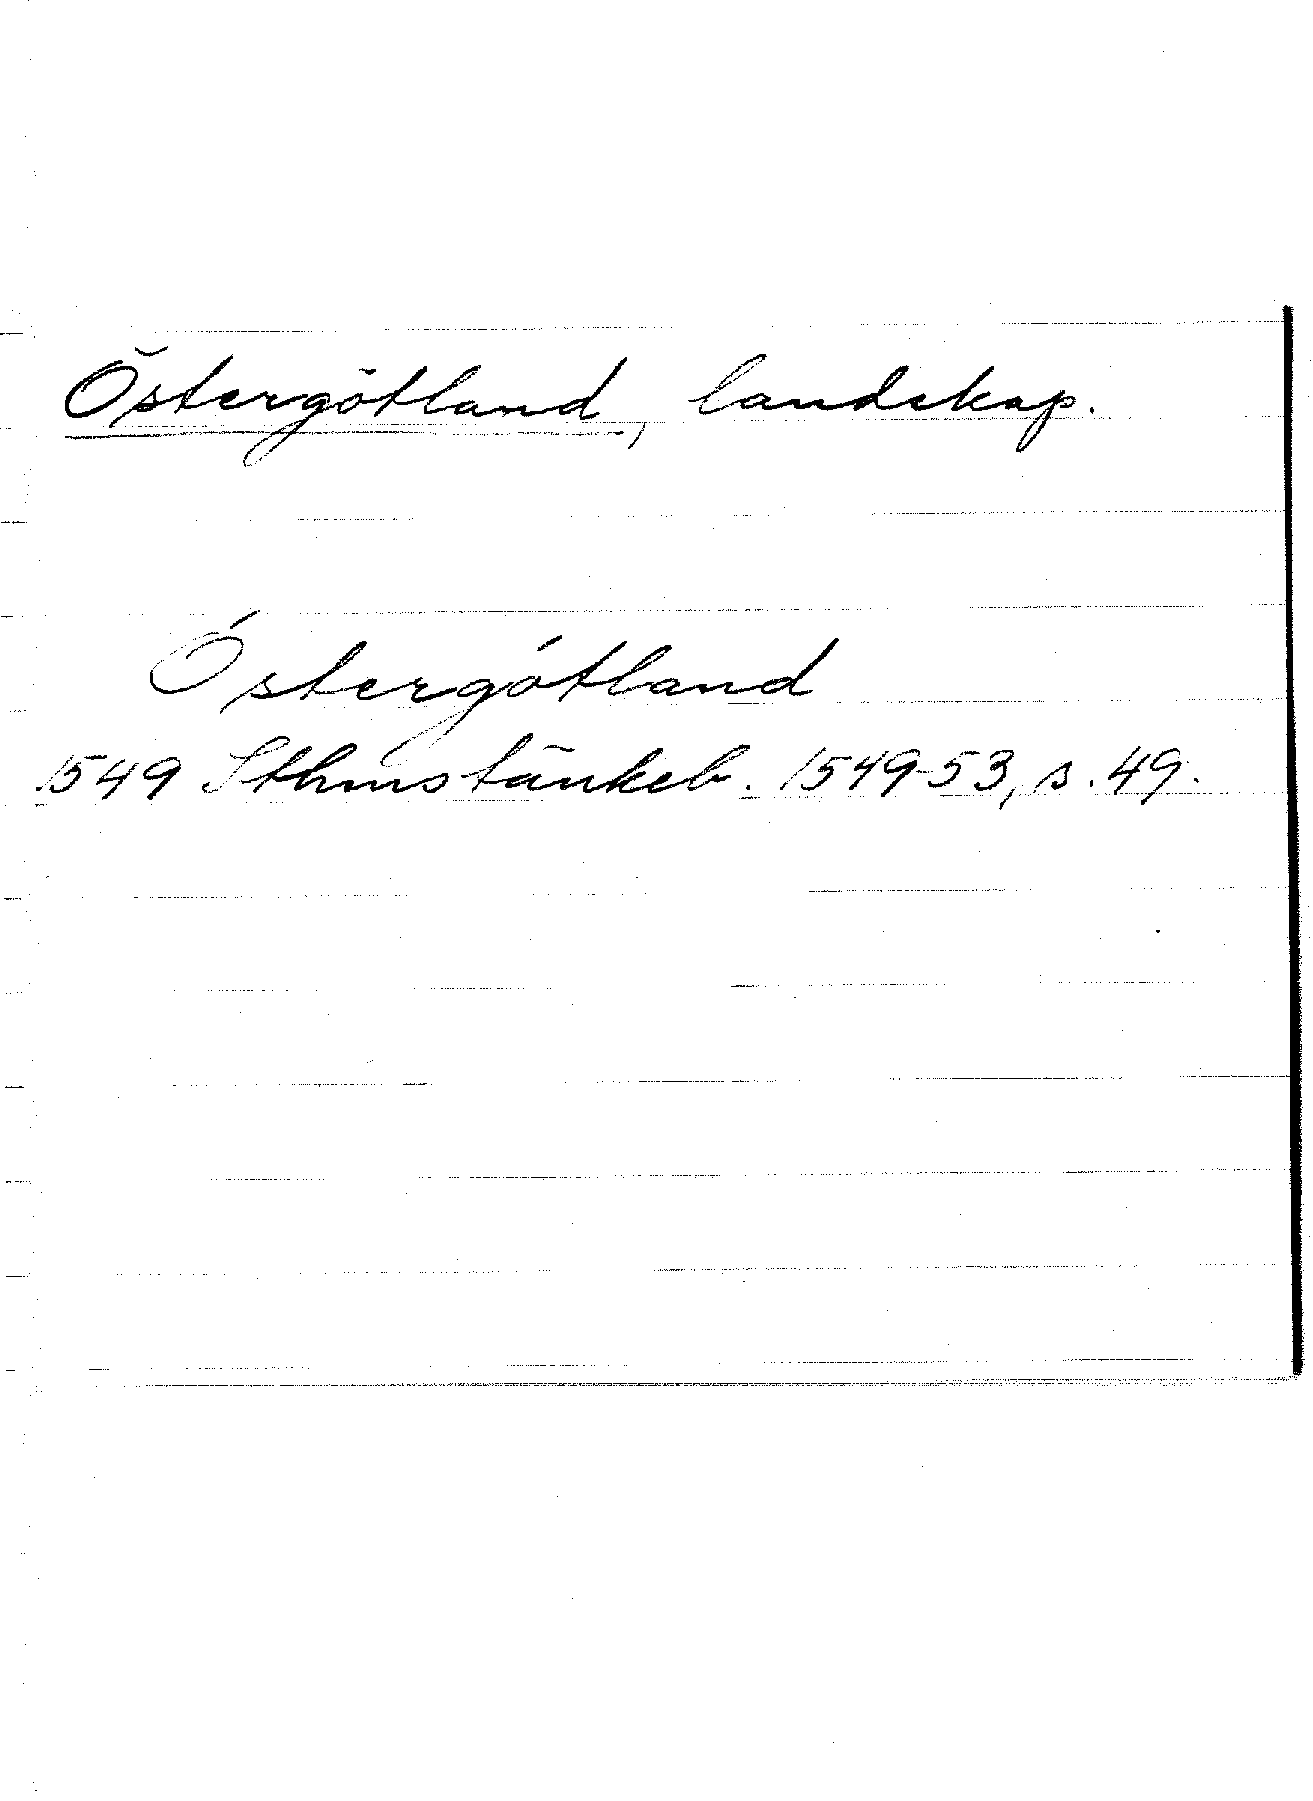 Östergötland, landskap.
Óstergótland
1549 Sthmstänkeb. 1549-53, s. 49.